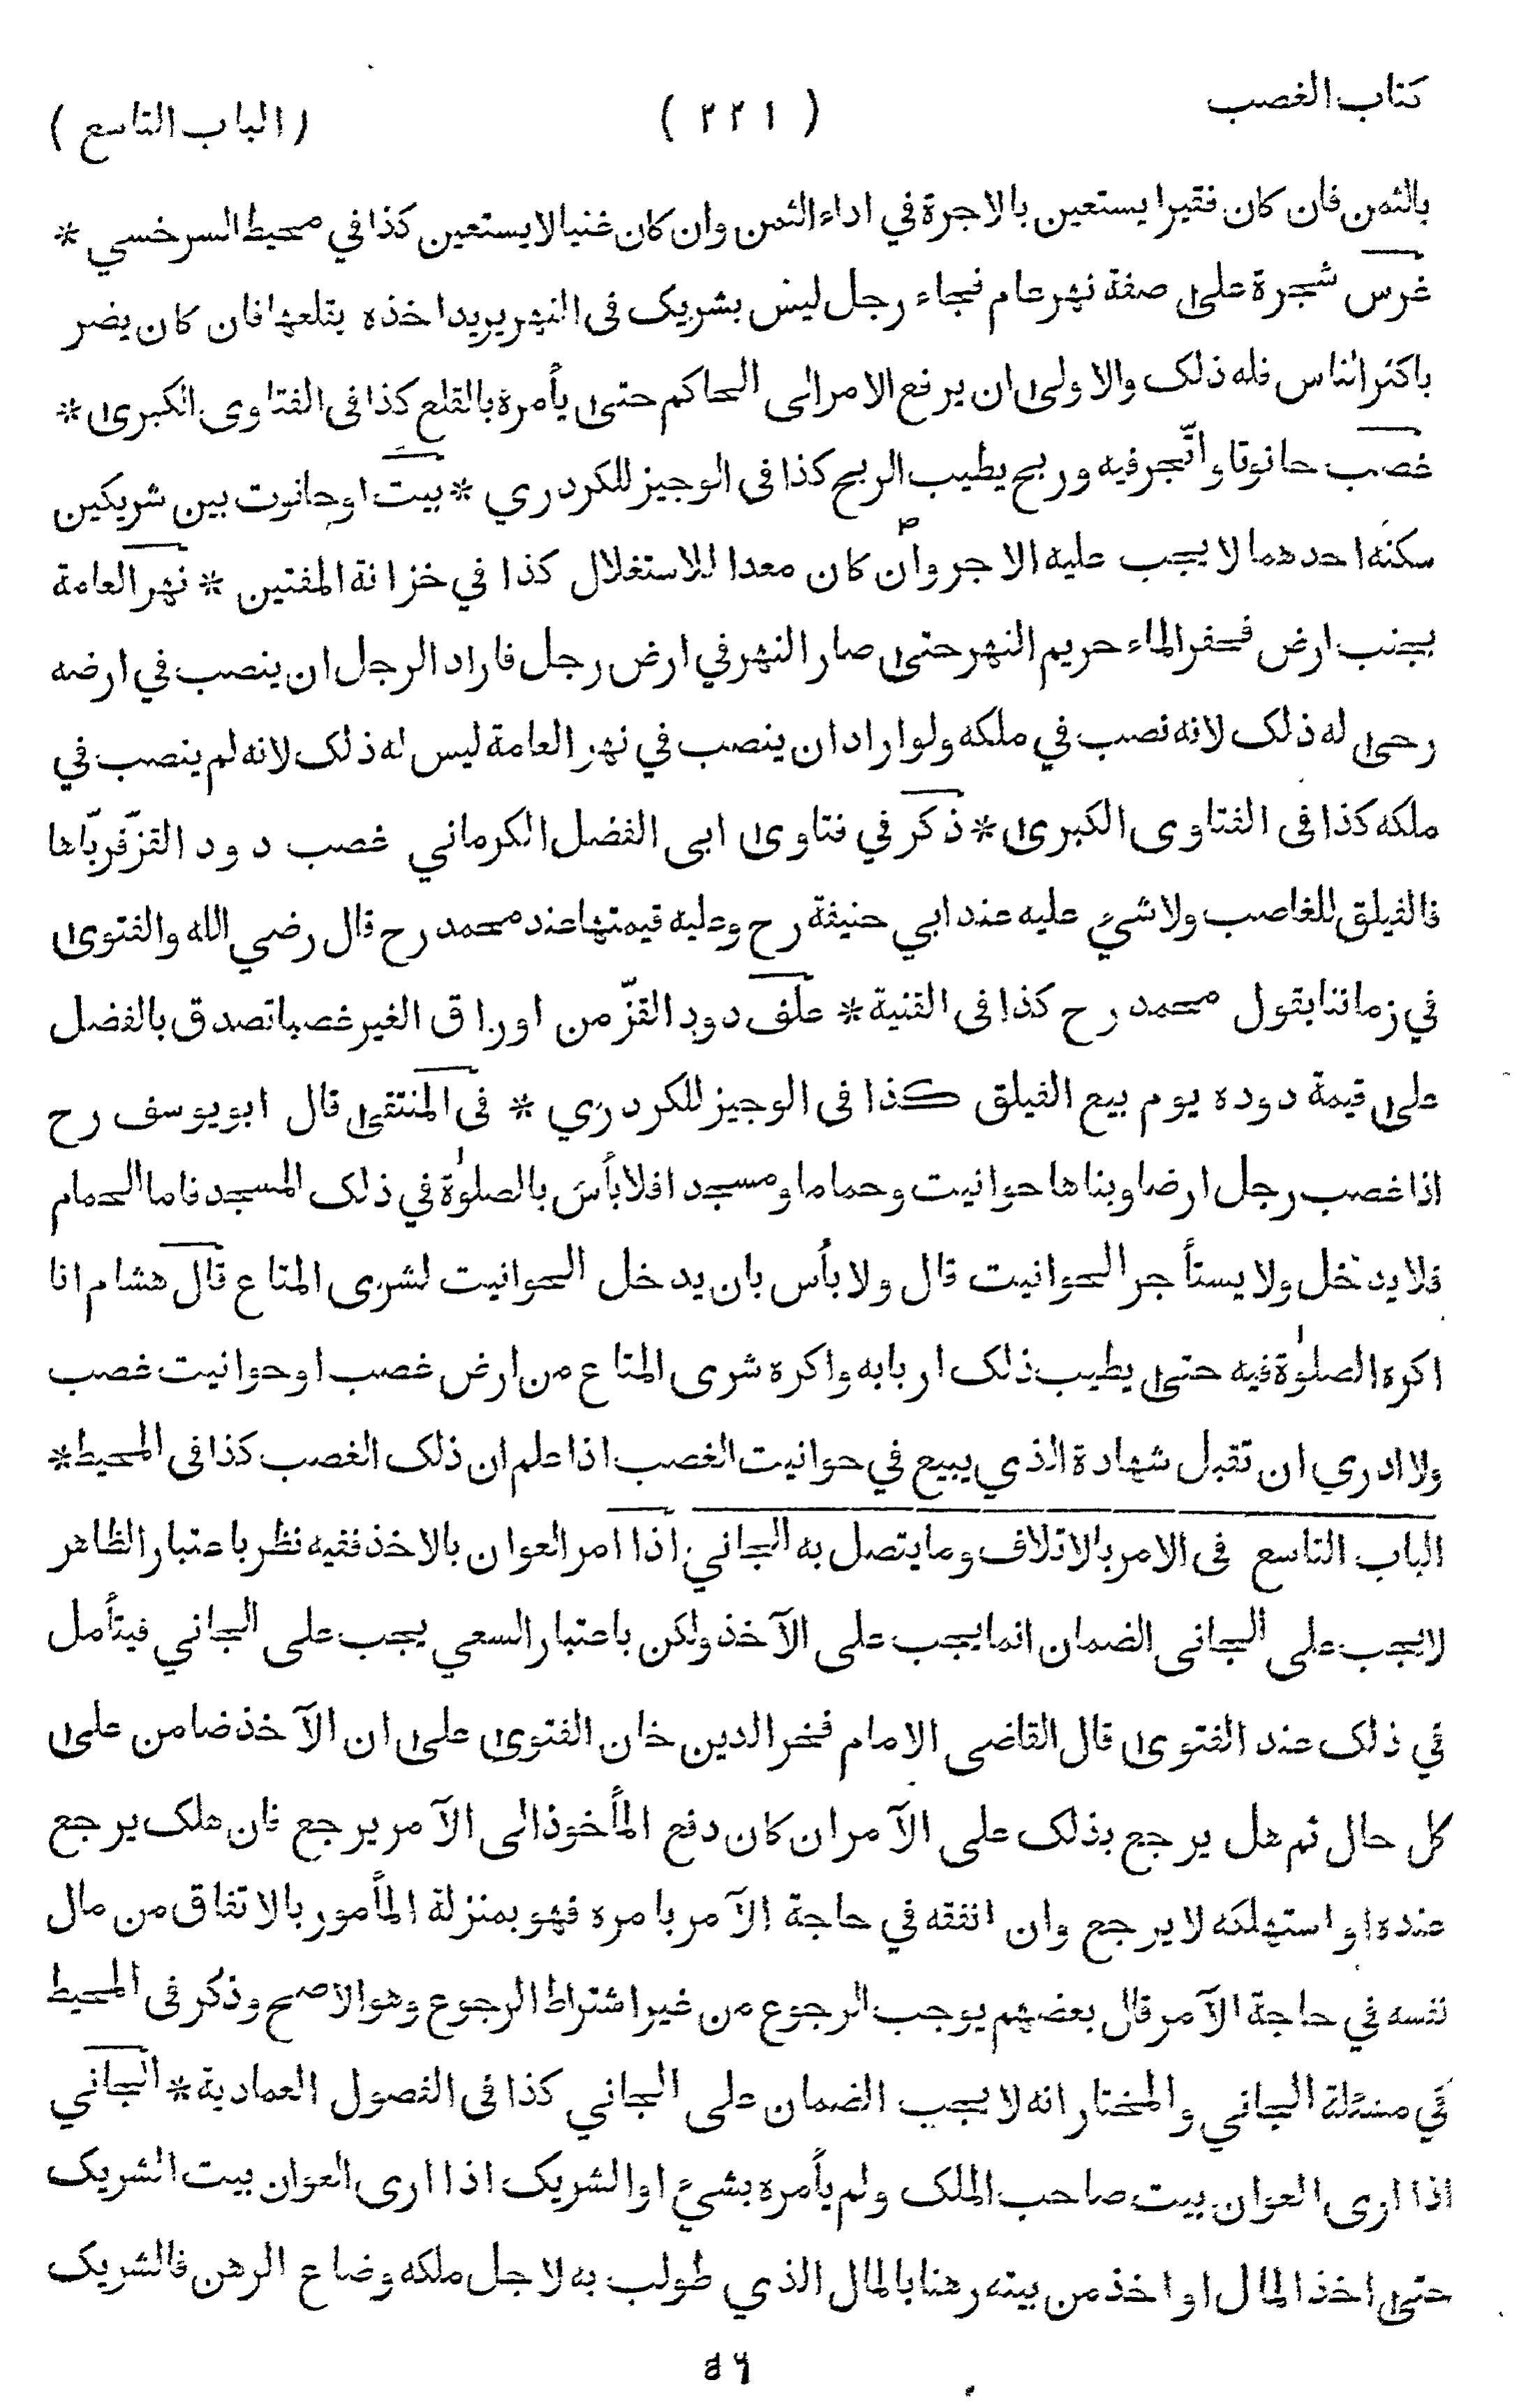 كتاب الغصب ( ٢٢١ ) ( الباب التاسع )
بالثمن فان كان فقيرا يستعين بالاجرة في اداء الثمن وان كان غنيا لا يستعين كذا في محيط السرخسي *
غرس شجرة على صفة نهر عام فجاء رجل ليس بشريك في النهر يريد اخذه بقلعها فان كان يضر
باكثر الناس فله ذلك والاولى ان يرفع الامر الى الحاكم حتى يأمرة بالقلع كذا في الفتاوى الكبرى *
غصب حانوتا واتّجر فيه وربح يطيب الربح كذا في الوجيز للكردري * بيت او حانوت بين شريكين
سكنه احدهما لا يجب عليه الاجر وان كان معدا للاستغلال كذا في خزانة المفتين * نهر العامة
بجنب ارض فحفر الماء حريم النهر حتى صار النهر في ارض رجل فاراد الرجل ان ينصب في ارضه
رحى له ذلك لانه نصب في ملكه ولو اراد ان ينصب في نهر العامة ليس له ذلك لانه لم ينصب في
ملكه كذا في الفتاوى الكبرى * ذكر في فتاوى ابى الفضل الكرماني غصب دود القزّ فربّاها
فالفيلق للغاصب ولا شيء عليه عند ابي حنيفة رح وعليه قيمتها عند محمد رح قال رضي الله والفتوى
في زماننا بقول محمد رح كذا في القنية * علف دود القزّ من اوراق الغير غصبا تصدق بالفضل
على قيمة دوده يوم بيع الفيلق كذا في الوجيز للكردري * في المنتقى قال ابو يوسف رح
اذا غصب رجل ارضا وبناها حوانيت وحماما ومسجدا فلا بأس بالصلوة في ذلك المسجد فاما الحمام
فلا يدخل ولا يستأجر الحوانيت قال ولا بأس بان يدخل الحوانيت لشرى المتاع قال هشام انا
اكرة الصلوة فيه حتى يطيب ذلك اربابه واكره شرى المتاع من ارض غصب او حوانيت غصب
ولا ادري ان تقبل شهادة الذي يبيع في حوانيت الغصب اذا علم ان ذلك الغصب كذا في المحيط *
الباب التاسع في الامر بالاتلاف وما يتصل به الجاني اذا امر العوان بالاخذ ففيه نظر باعتبار الظاهر
لا يجب على الجانى الضمان انما يجب على الآخذ ولكن باعتبار السعي يجب على الجاني فيتأمل
في ذلك عند الفتوى قال القاضي الامام فخر الدين خان الفتوى على ان الآخذ ضامن على
كل حال ثم هل يرجع بذلك على الآمر ان كان دفع المأخوذ الى الآمر يرجع فان هلك يرجع
عنده او استهلكه لا يرجع وان انفقه في حاجة الآمر بامره فهو بمنزلة المأمور بالاتفاق من مال
نفسه في حاجة الآمر قال بعضهم يوجب الرجوع من غير اشتراط الرجوع وهو الاصح وذكر في المحيط
في مسئلة الجاني والمختار انه لا يجب الضمان على الجاني كذا في الفصول العمادية * الجاني
اذا ارى العوان بيت صاحب الملك ولم يأمره بشيء او الشريك اذا ارى العوان بيت الشريك
حتى اخذ المال او اخذ من بيته رهنا بالمال الذي طولب به لاجل ملكه وضاع الرهن فالشريك